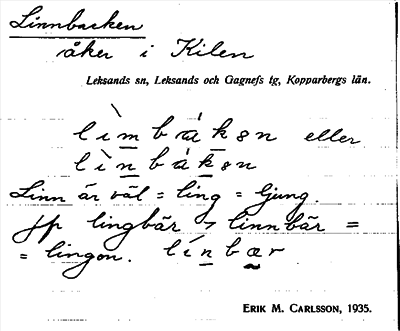 Linnbacken
åker i Kilen
Leksands sn, Leksands och Gagnefs tg, Kopparbergs län.
lìmbákən eller
lìnbákən
Linn är väl = ling = ljung.
jfr lingbär > linnbär =
= lingon. línbær
ERIK M. CARLSSON, 1935.